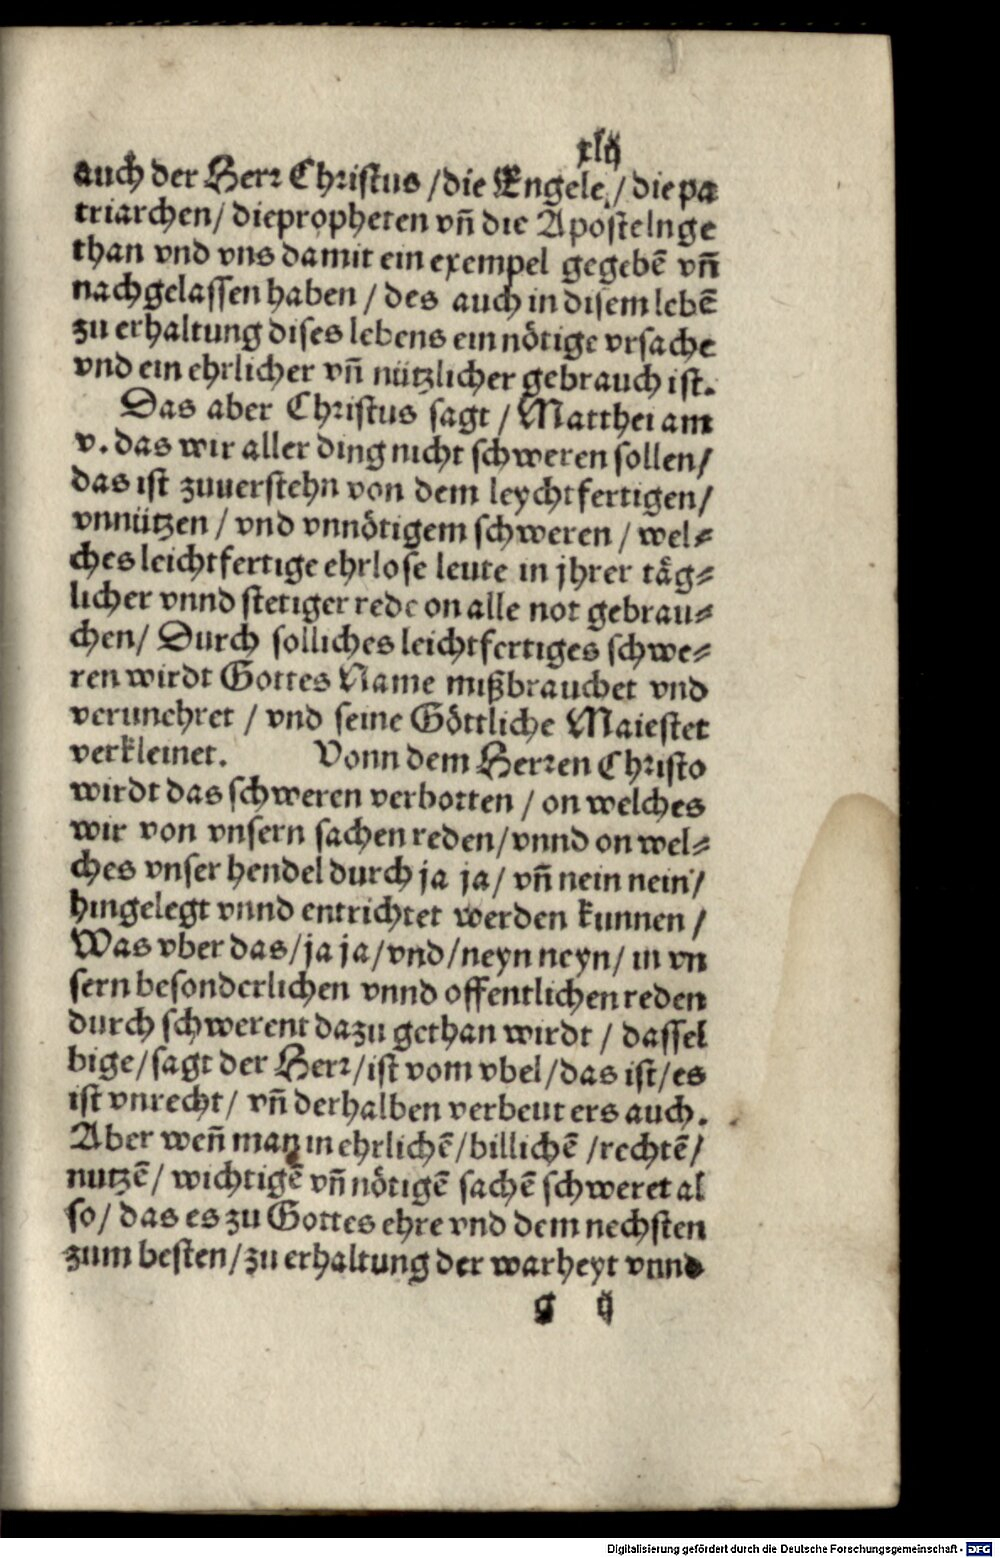 xlij
auch der Herr Christus / die Engele / die pa
triarchen / die propheten vñ die Apostelnge
than vnd vns damit ein exempel gegebē vñ
nachgelassen haben / des auch in disem lebē
zu erhaltung dises lebens ein nötige vrsache
vnd ein ehrlicher vñ nützlicher gebrauch ist.
Das aber Christus sagt / Matthei am
v. das wir aller ding nicht schweren sollen /
das ist zuuerstehn von dem leychtfertigen /
vnnützen / vnd vnnötigem schweren / wel⸗
ches leichtfertige ehrlose leute in jhrer täg⸗
licher vnnd stetiger rede on alle not gebrau⸗
chen / Durch solliches leichtfertiges schwe⸗
ren wirdt Gottes Name mißbrauchet vnd
verunehret / vnd seine Göttliche Maiestet
verkleinet. Vonn dem Herren Christo
wirdt das schweren verbotten / on welches
wir von vnsern sachen reden / vnnd on wel⸗
ches vnser hendel durch ja ja / vñ nein nein /
hingelegt vnnd entrichtet werden kunnen /
Was vber das / ja ja / vnd / neyn neyn / in vn
sern besonderlichen vnnd offentlichen reden
durch schwerent dazu gethan wirdt / dassel
bige / sagt der Herr / ist vom vbel / das ist / es
ist vnrecht / vñ derhalben verbeut ers auch.
Aber weñ man in ehrlichē / billichē / rechtē /
nutzē / wichtigē vñ nötigē sachē schweret al
so / das es zu Gottes ehre vnd dem nechsten
zum besten / zu erhaltung der warheyt vnnd
g ij
Digitalisierung gefördert durch die Deutsche Forschungsgemeinschaft - DFG